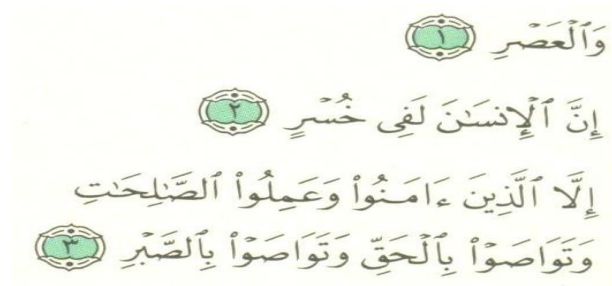 وَٱلْعَصْرِ ١
إِنَّ ٱلْإِنسَٰنَ لَفِى خُسْرٍ ٢
إِلَّا ٱلَّذِينَ ءَامَنُوا۟ وَعَمِلُوا۟ ٱلصَّٰلِحَٰتِ
وَتَوَاصَوْا۟ بِٱلْحَقِّ وَتَوَاصَوْا۟ بِٱلصَّبْرِ ٣